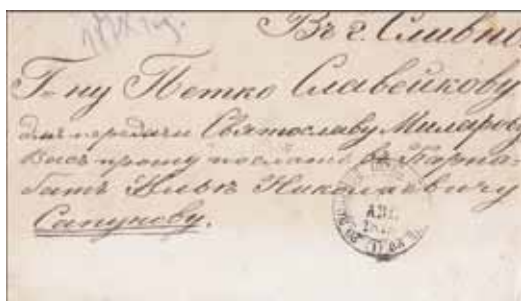 187 год.
Въ г. Сливно
Г-ну Петко Славейкову
для передачи Святославу Миларову
Васъ прошу послать въ Карна-
батъ Ильѣ Николаевичу
Сапунову.
АВГ.